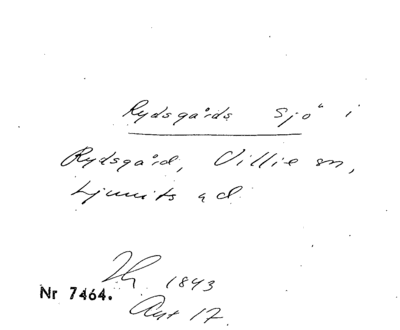 Rydsgårds Sjö i
Rydsgård, Villie sn,
Ljunits hd
1843
Nr 7464.
Akt 17